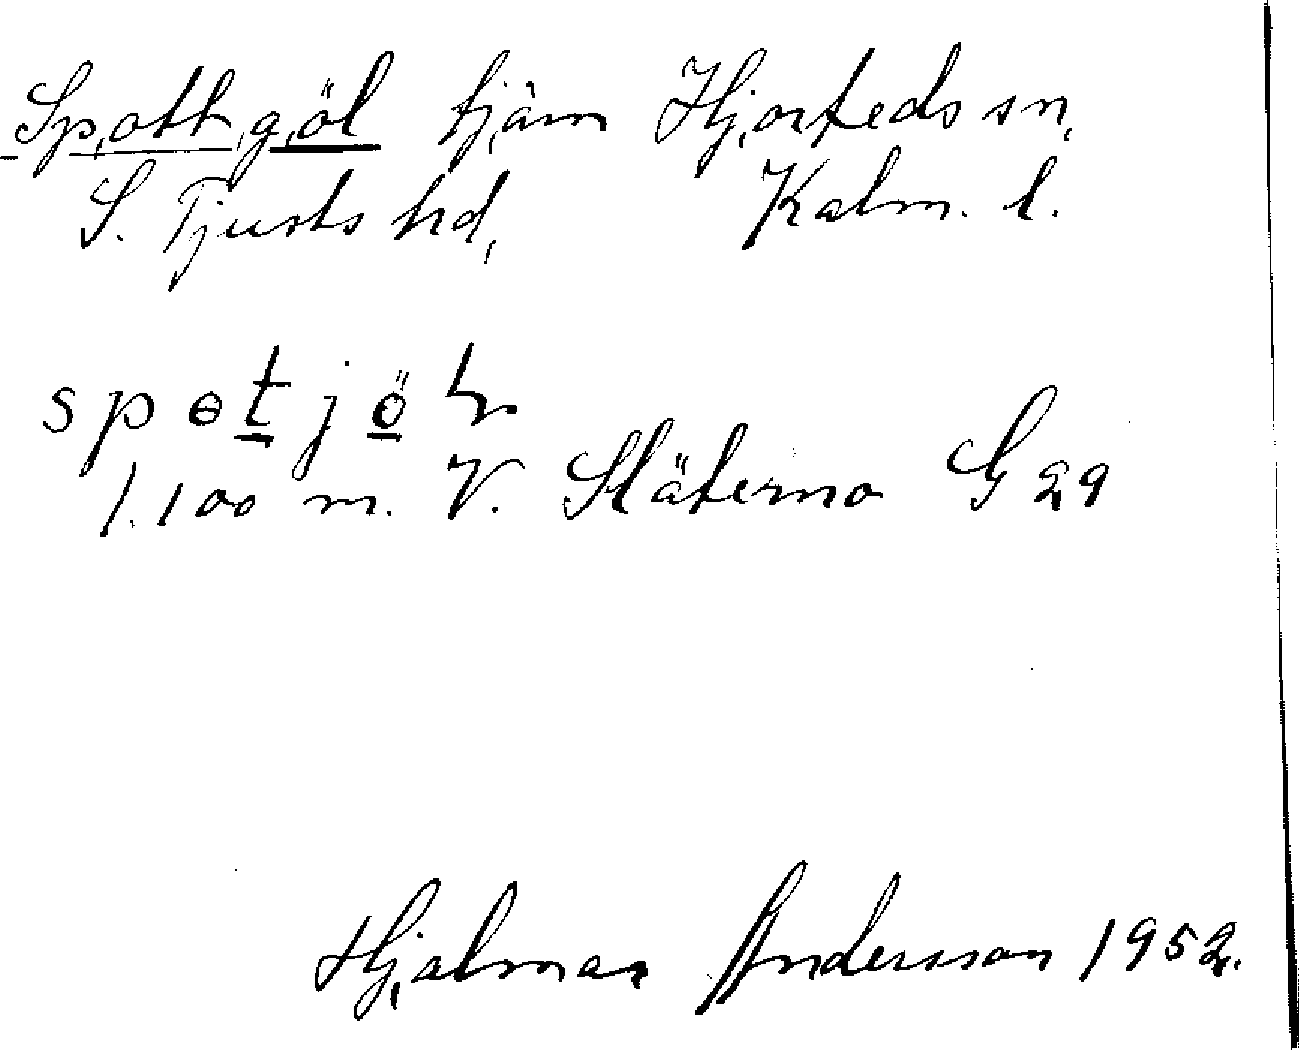 Spottgöl tjärn Hjorteds sn,
S. Tjusts hd, Kalm. l.
spɵtjöl
1.100 m. V. Släterna G 29
Hjalmar Andersson 1952.